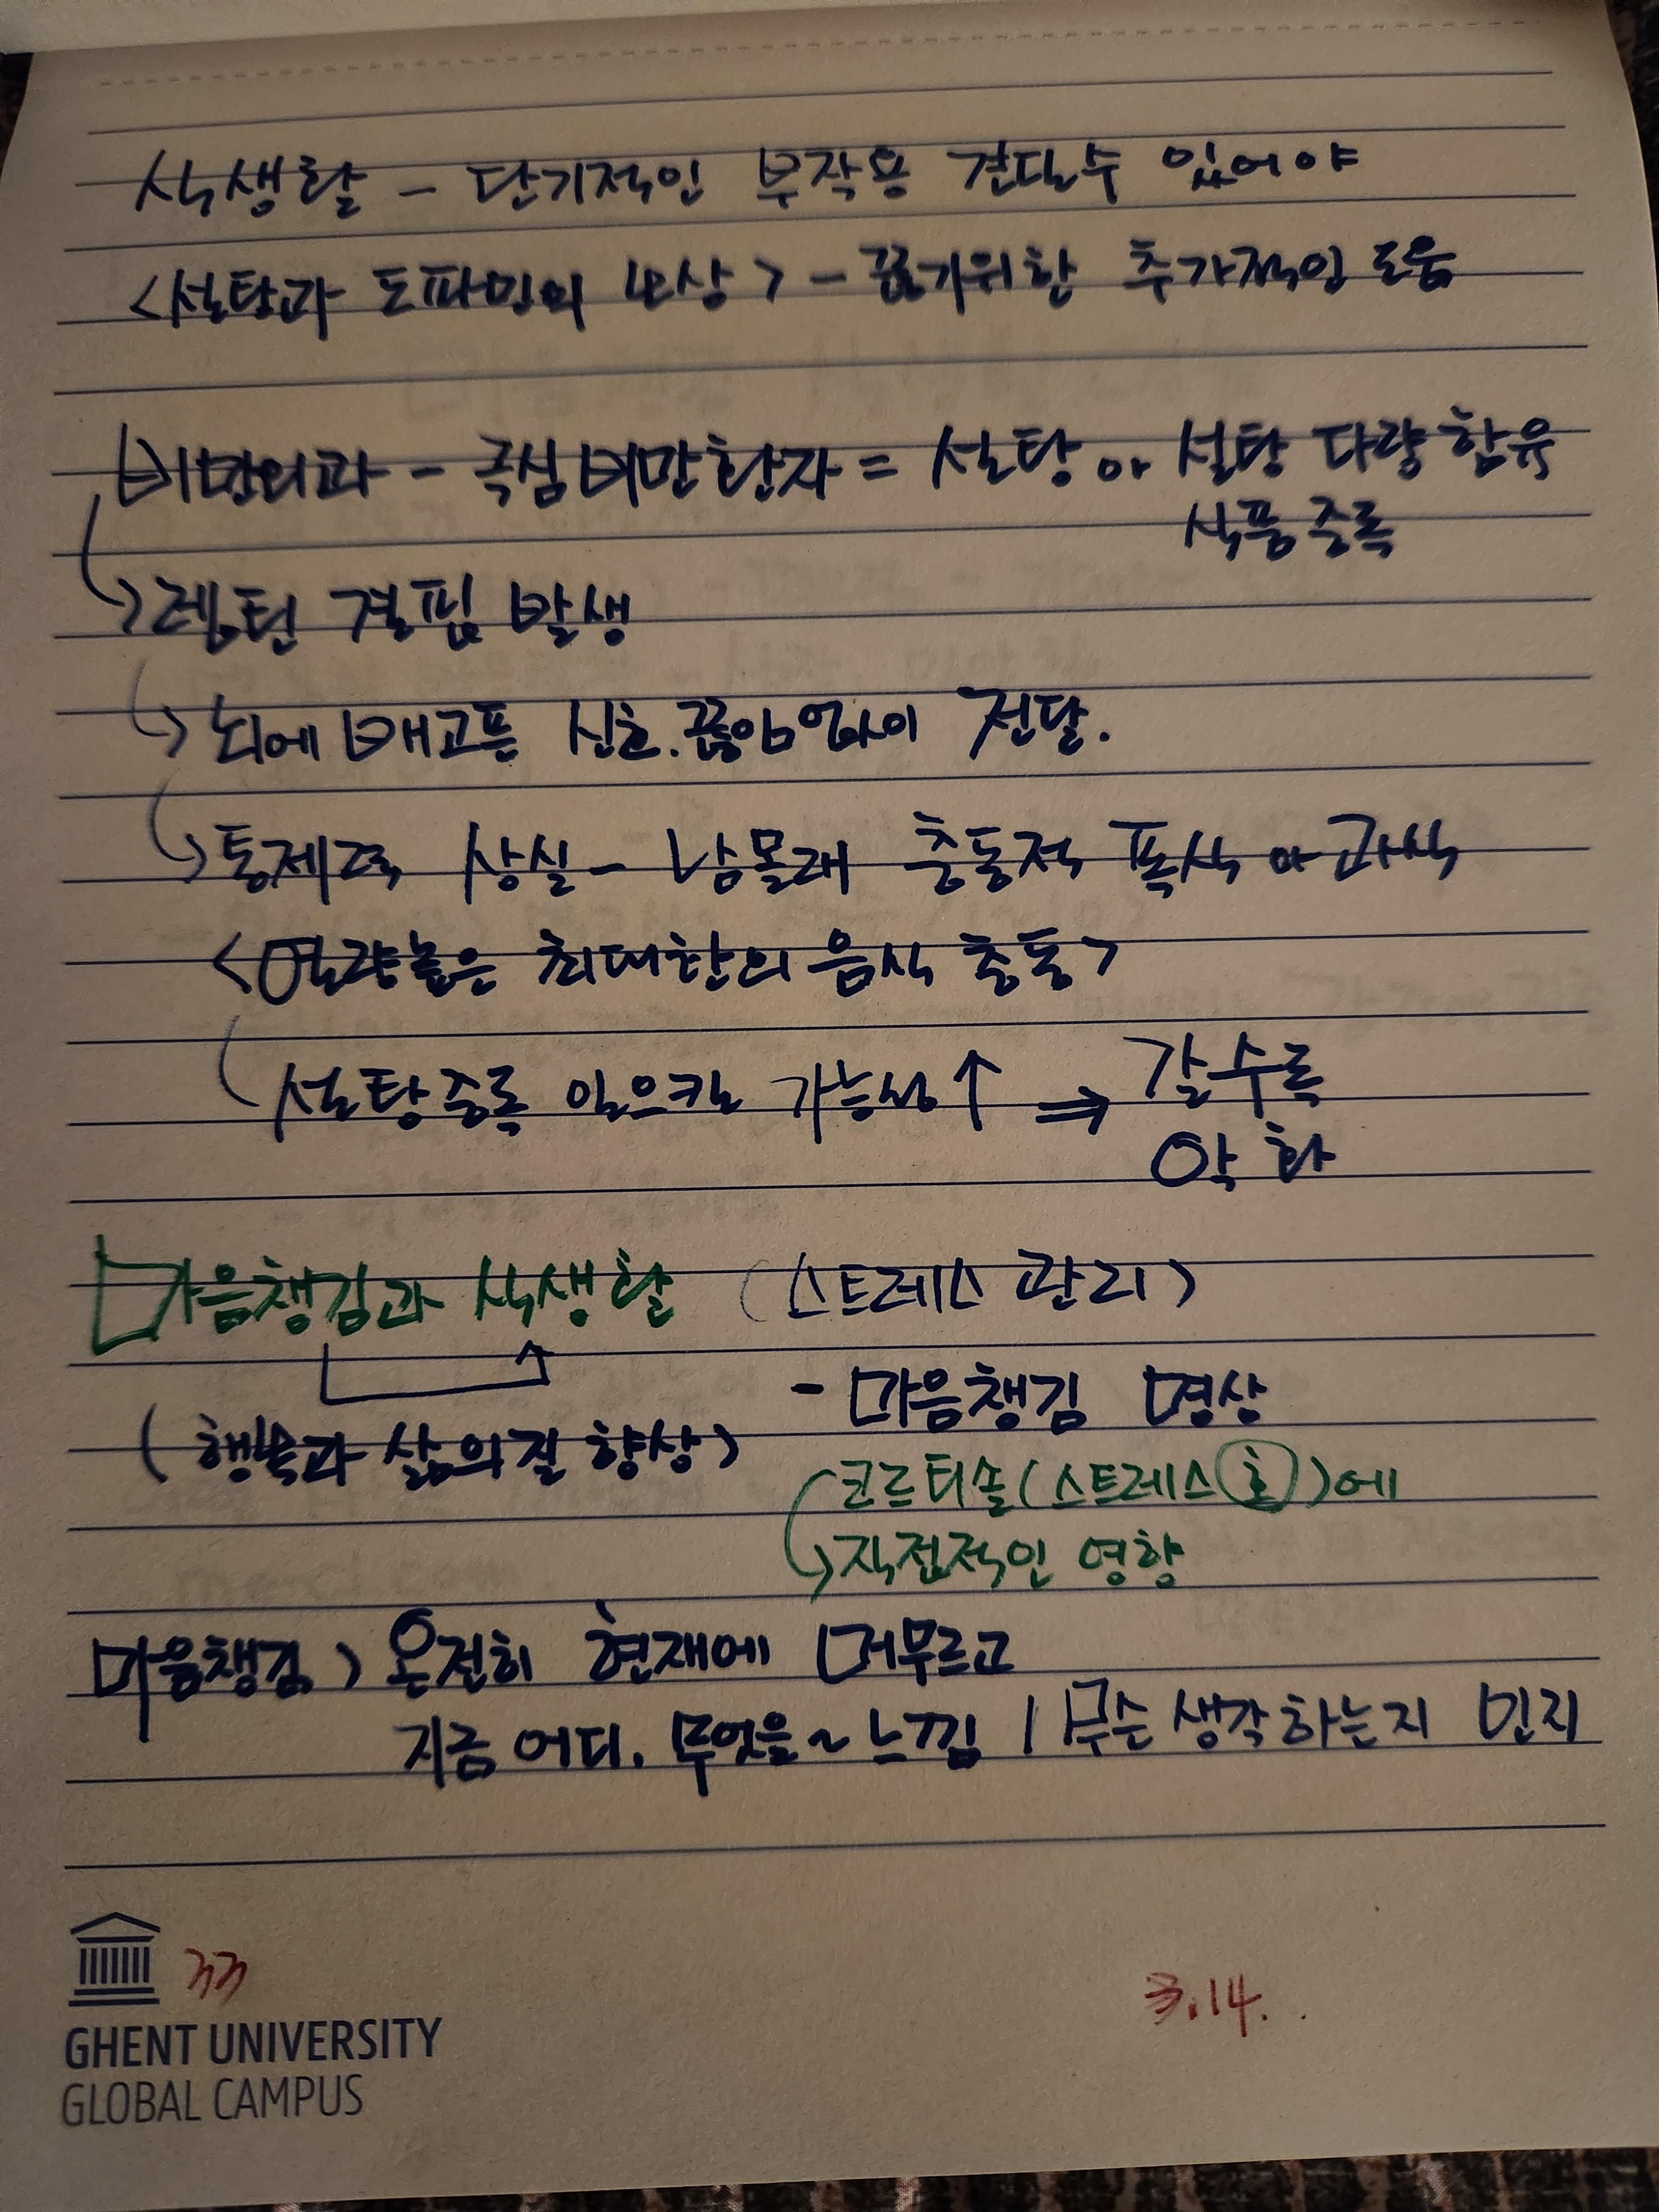 식생활 - 단기적인 부작용 견딜수 있어야
<설탕과 도파민의 보상> - 끊기위한 추가적인 도움
비만외과 - 극심 비만환자 = 설탕 or 설탕 다량 함유
식품 중독
→ 렙틴 결핍 발생
→ 뇌에 배고픔 신호. 끊임없이 전달.
→ 통제력 상실 - 남몰래 충동적 폭식 or 과식
<열량높은 최대한의 음식 충동>
설탕중독 일으킬 가능성↑ ⇒ 갈수록
악화
마음챙김과 식생활 (스트레스 관리)
- 마음챙김 명상
(행복과 삶의질 향상)
코르티솔(스트레스 호)에
→ 직접적인 영향
마음챙김) 온전히 현재에 머무르고
지금 어디. 무엇을~느낌 / 무슨 생각하는지 인지
33
3.14.
GHENT UNIVERSITY
GLOBAL CAMPUS